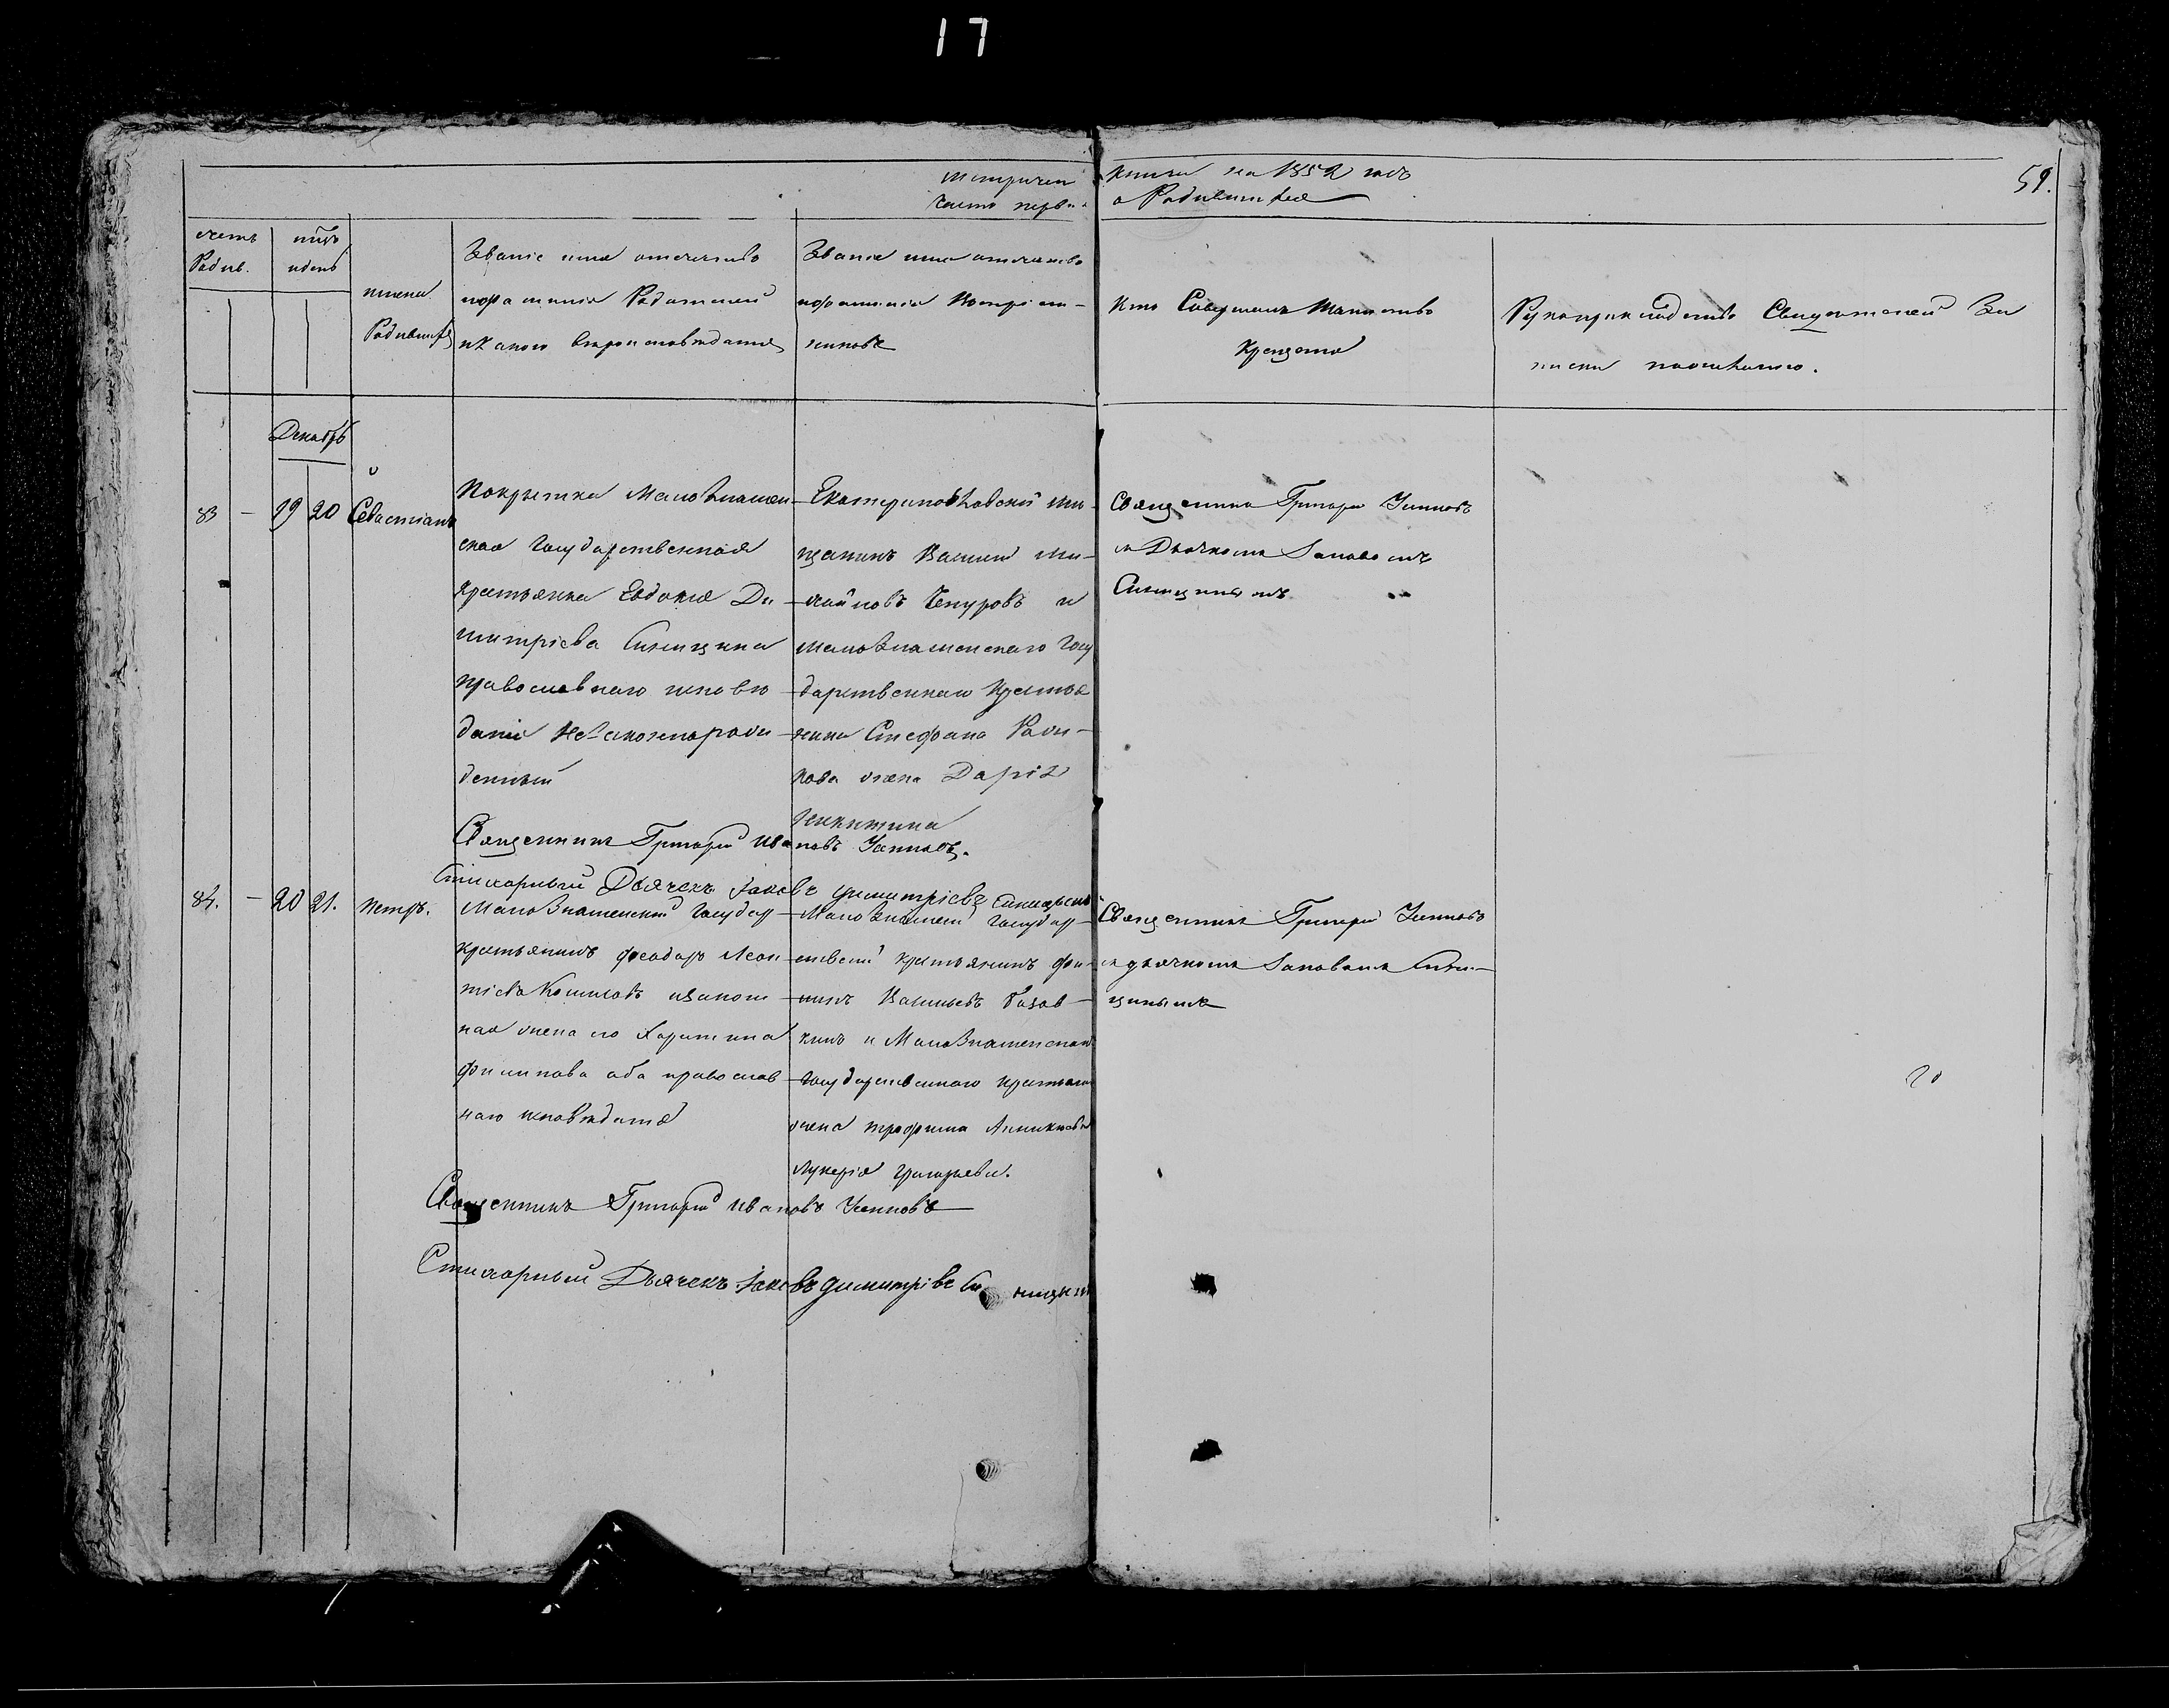 17
Метричен книги на 1852 годъ 59.
Часть перва о Родившихся
счетъ Родив.
мцъ и день
имена Родившихся
Званіе имя отечество
и фамилія Родителей
и какого вероисповѣданія
Званіе имя отечество
и фамилія Воспріем-
никовъ
Кто Совершалъ Таинство
Крещенія
Рукоприкладство Свидѣтелей За
писи по желанію.
Декабрь
83 - 19 20 Севастіанъ
Покрытка МалоЗнамен-
ская Государственная
Крестьянка Евдокія Ди
митріева Синицына
православнаго исповѣ
данія Незаконнорож
денный
Екатеринославскій мѣ-
щанинъ Василій Ми-
хайловъ Чепуровъ и
малоЗнаменскаго Госу
дарственнаго Крестья
нина Стефана
жена Дарія
Никитина
Священникъ Григорій
съ Дьячкомъ Іаковомъ
Синицинымъ
Священникъ Григорій Ивановъ
Стихарный Дьячекъ Іаковъ Димитріевъ Синицынъ
84. - 20 21. Петръ.
МалоЗнаменскій Государ
крестьянинъ Феодоръ Леон
тіевъ и закон
ная жена его Харитина
Филипова оба православ
наго исповѣданія
МалоЗнаменскій Государ-
ственный крестьянинъ Фи-
липъ Васильевъ
и МалоЗнаменскаго
Государственнаго крестьянина
жена Трофима
Лукерія Григорьева.
Священникъ Григорій
съ дьячкомъ Іаковомъ Сини-
цинымъ
Священникъ Григорій Ивановъ
Стихарный Дьячекъ Іаковъ Димитріевъ Синицынъ